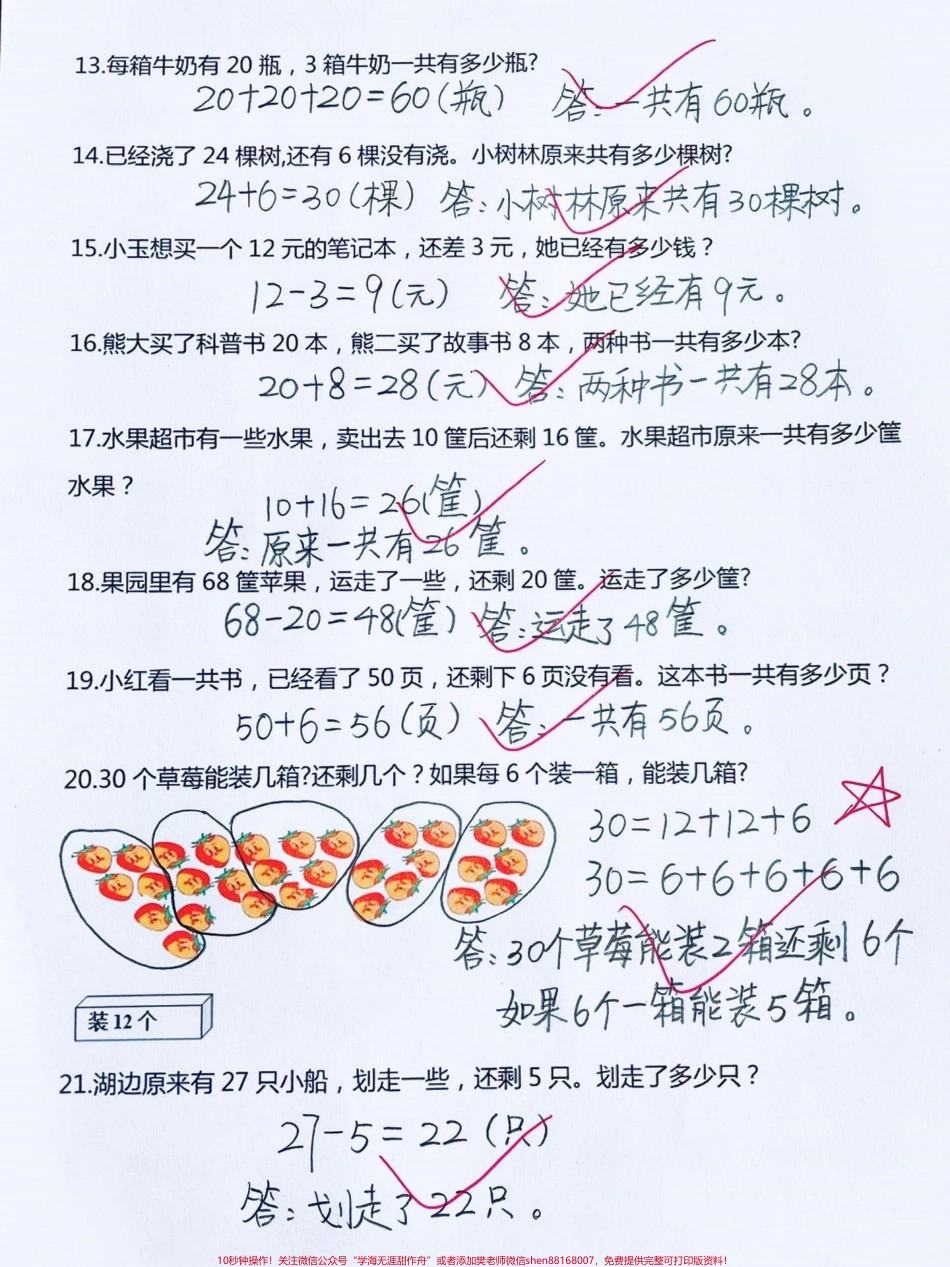 13.每箱牛奶有 20 瓶，3 箱牛奶一共有多少瓶?
20+20+20=60(瓶) 答:一共有60瓶。
14.已经浇了 24 棵树,还有 6 棵没有浇。小树林原来共有多少棵树?
24+6=30(棵) 答:小树林原来共有30棵树。
15.小玉想买一个 12 元的笔记本，还差 3 元，她已经有多少钱？
12-3=9(元) 答:她已经有9元。
16.熊大买了科普书 20 本，熊二买了故事书 8 本，两种书一共有多少本?
20+8=28(元) 答:两种书一共有28本。
17.水果超市有一些水果，卖出去 10 筐后还剩 16 筐。水果超市原来一共有多少筐
水果？
10+16=26(筐)
答:原来一共有26筐。
18.果园里有 68 筐苹果，运走了一些，还剩 20 筐。运走了多少筐?
68-20=48(筐) 答:运走了48筐。
19.小红看一共书，已经看了 50 页，还剩下 6 页没有看。这本书一共有多少页？
50+6=56(页) 答:一共有56页。
20.30 个草莓能装几箱?还剩几个？如果每 6 个装一箱，能装几箱?
30=12+12+6
30=6+6+6+6+6
答:30个草莓能装2箱还剩6个
如果6个一箱能装5箱。
装12个
21.湖边原来有 27 只小船，划走一些，还剩 5 只。划走了多少只？
27-5=22(只)
答:划走了22只。
10秒钟操作！关注微信公众号“学海无涯甜作舟”或者添加樊老师微信shen88168007，免费提供完整可打印版资料！